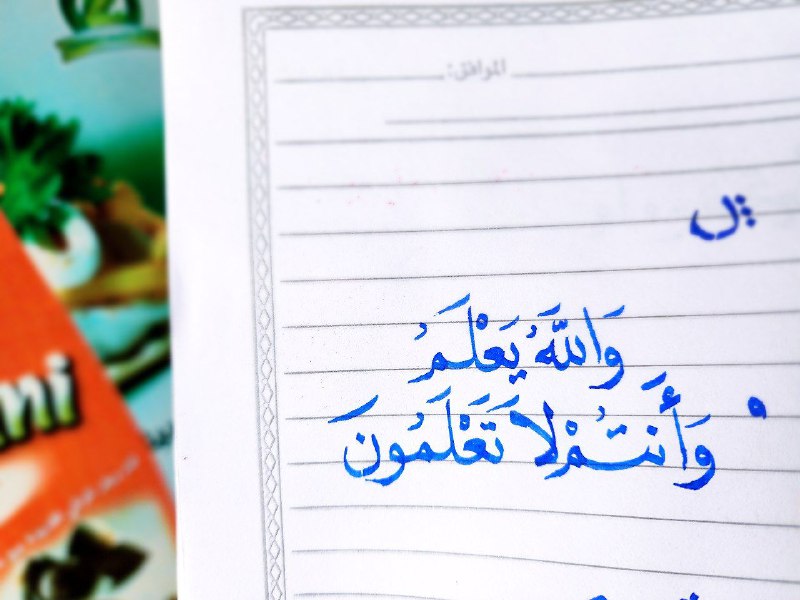 الموافق:
وَاللَّهُ يَعْلَمُ
وَأَنتُمْ لَا تَعْلَمُونَ